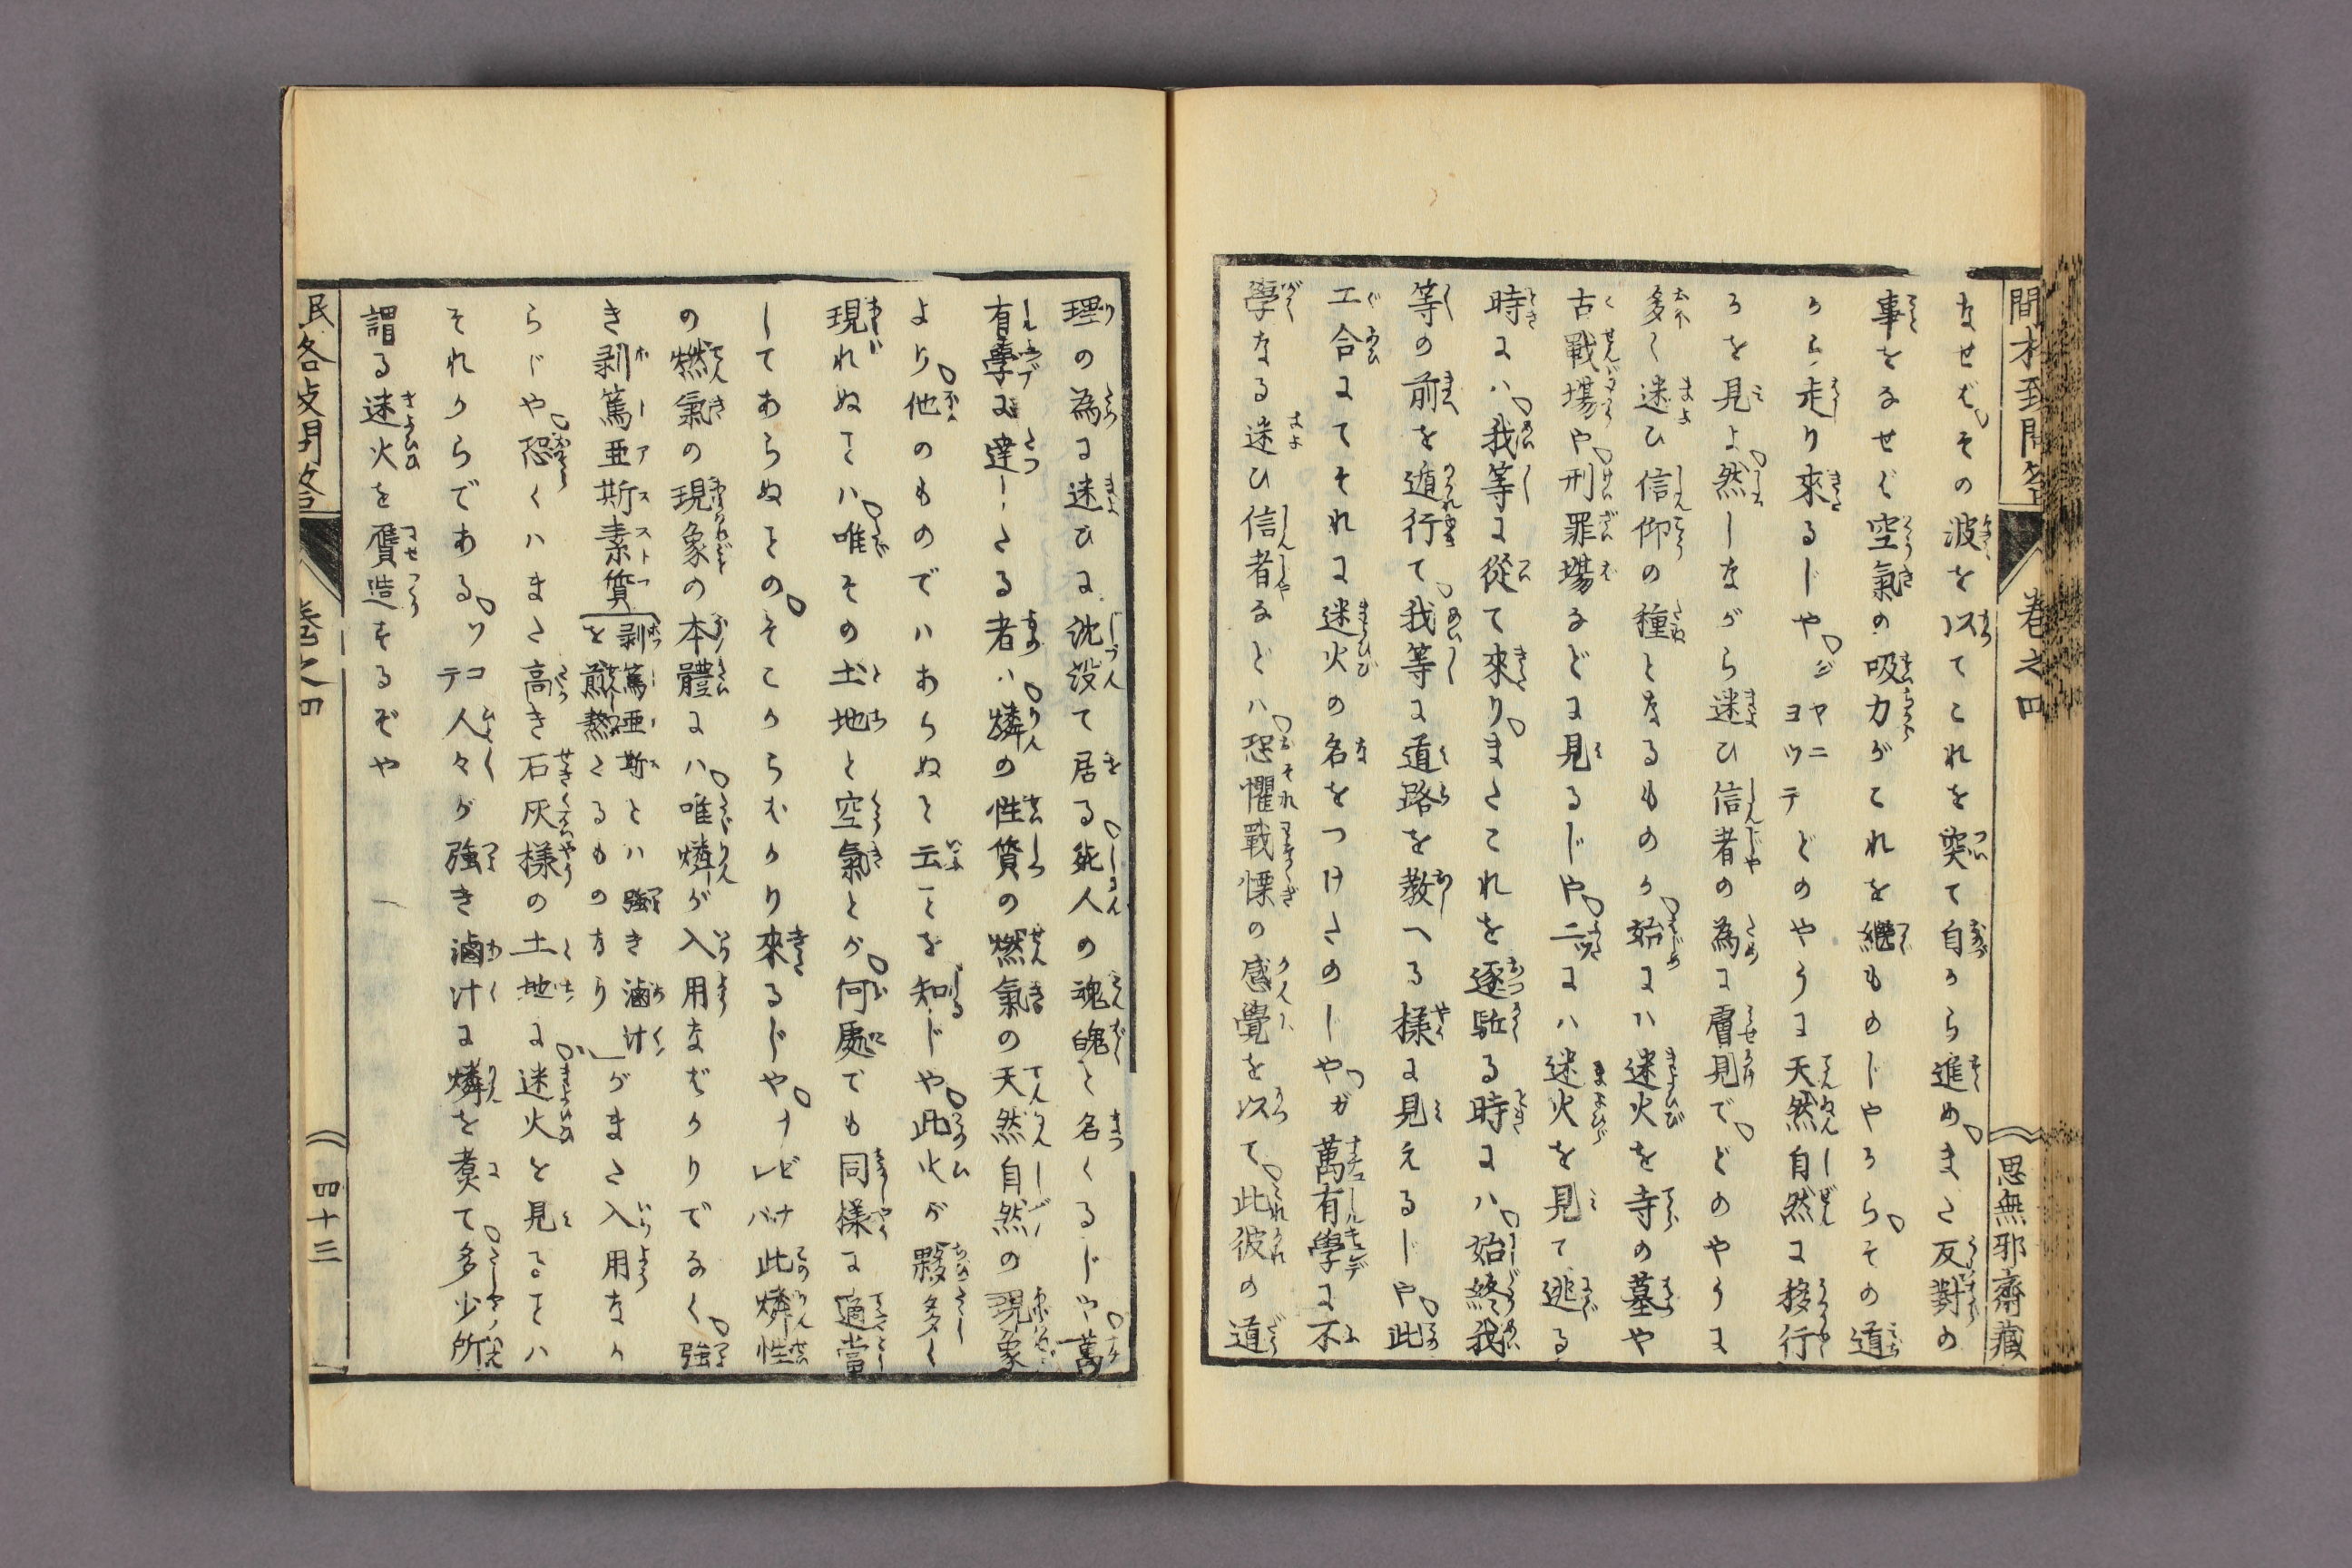 なせバその波を以てこれを突て自から進めまた反對の
事をなせバ空氣の吸力がこれを繼ものじやから其の道
から走り來るじやジヤニヨツテどのやうに天然自然に移行
ろを見よ然しながら迷ひ信者の為に膚見でどのやうに
多く迷ひ信仰の種となるものか始にハ迷火を寺の墓や
古戰場や刑罪場などに見るじや二ツにハ迷火を見て逃る
時にハ我等に從て來りまたこれを逐駈る時にハ始終我
等の前を遁行て我等に道路を教へる樣に見えるじや此
工合にてそれに迷火の名をつけたのじやガ萬有學に不
學なる迷ひ信者などハ恐懼戰慄の感覺を以て此彼の道
理の為に迷ひに沈没て居る死人の魂魄と名くるじや萬
有學に達したる者ハ燐の性質の燃氣の天然自然の現象
より他のものでハあらぬと云ことを知じや此火が夥多く
現れぬてハ唯その土地と空氣とが何處でも同樣に適當
してあらぬとのそこからむかり來るじやナレバ此燐性
の燃氣の現象の本體にハ唯燐が入用なバかりでなく強
き剥篤亜斯素質「剥篤亜斯とハ強き滷汁を煎熬たるものなり」がまた入用なか
らじや恐くハまた高き石灰樣の土地に迷火を見ることハ
それからである ソコテ人々が強き滷汁に燐を煑て多少所
謂る迷火を贋造をるぞや
巻之四
思無邪齋藏
巻之四
四十三